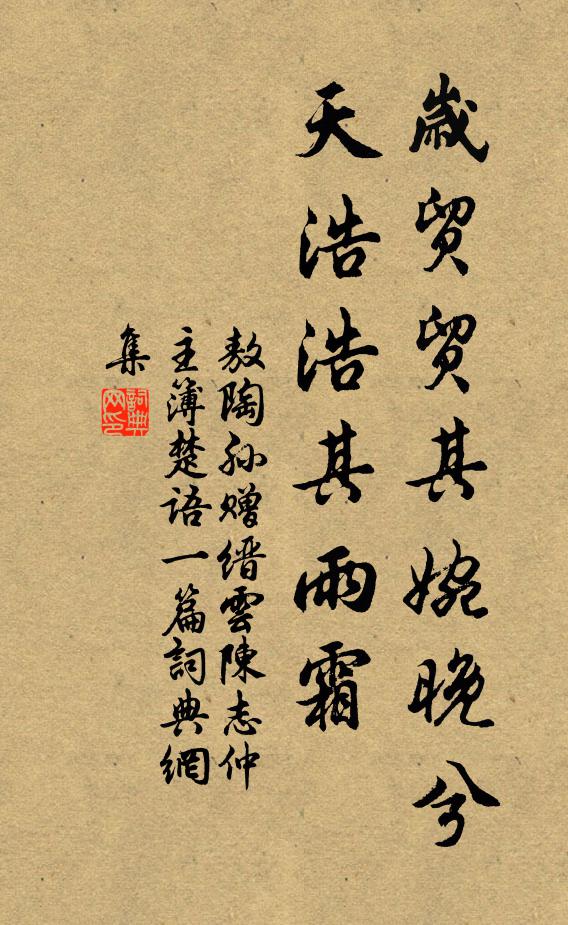 歲貿貿其婉晚兮
天浩浩其雨霜
敖陶孫贈縉雲陳志仲
主簿楚語一篇詞典網
集
詞典
网印